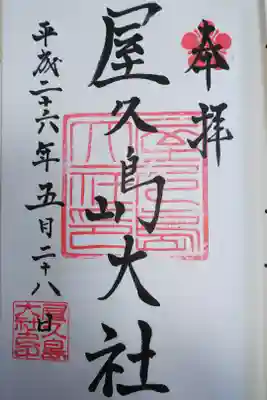 奉拝
屋久島大社
平成二十六年五月二十八日